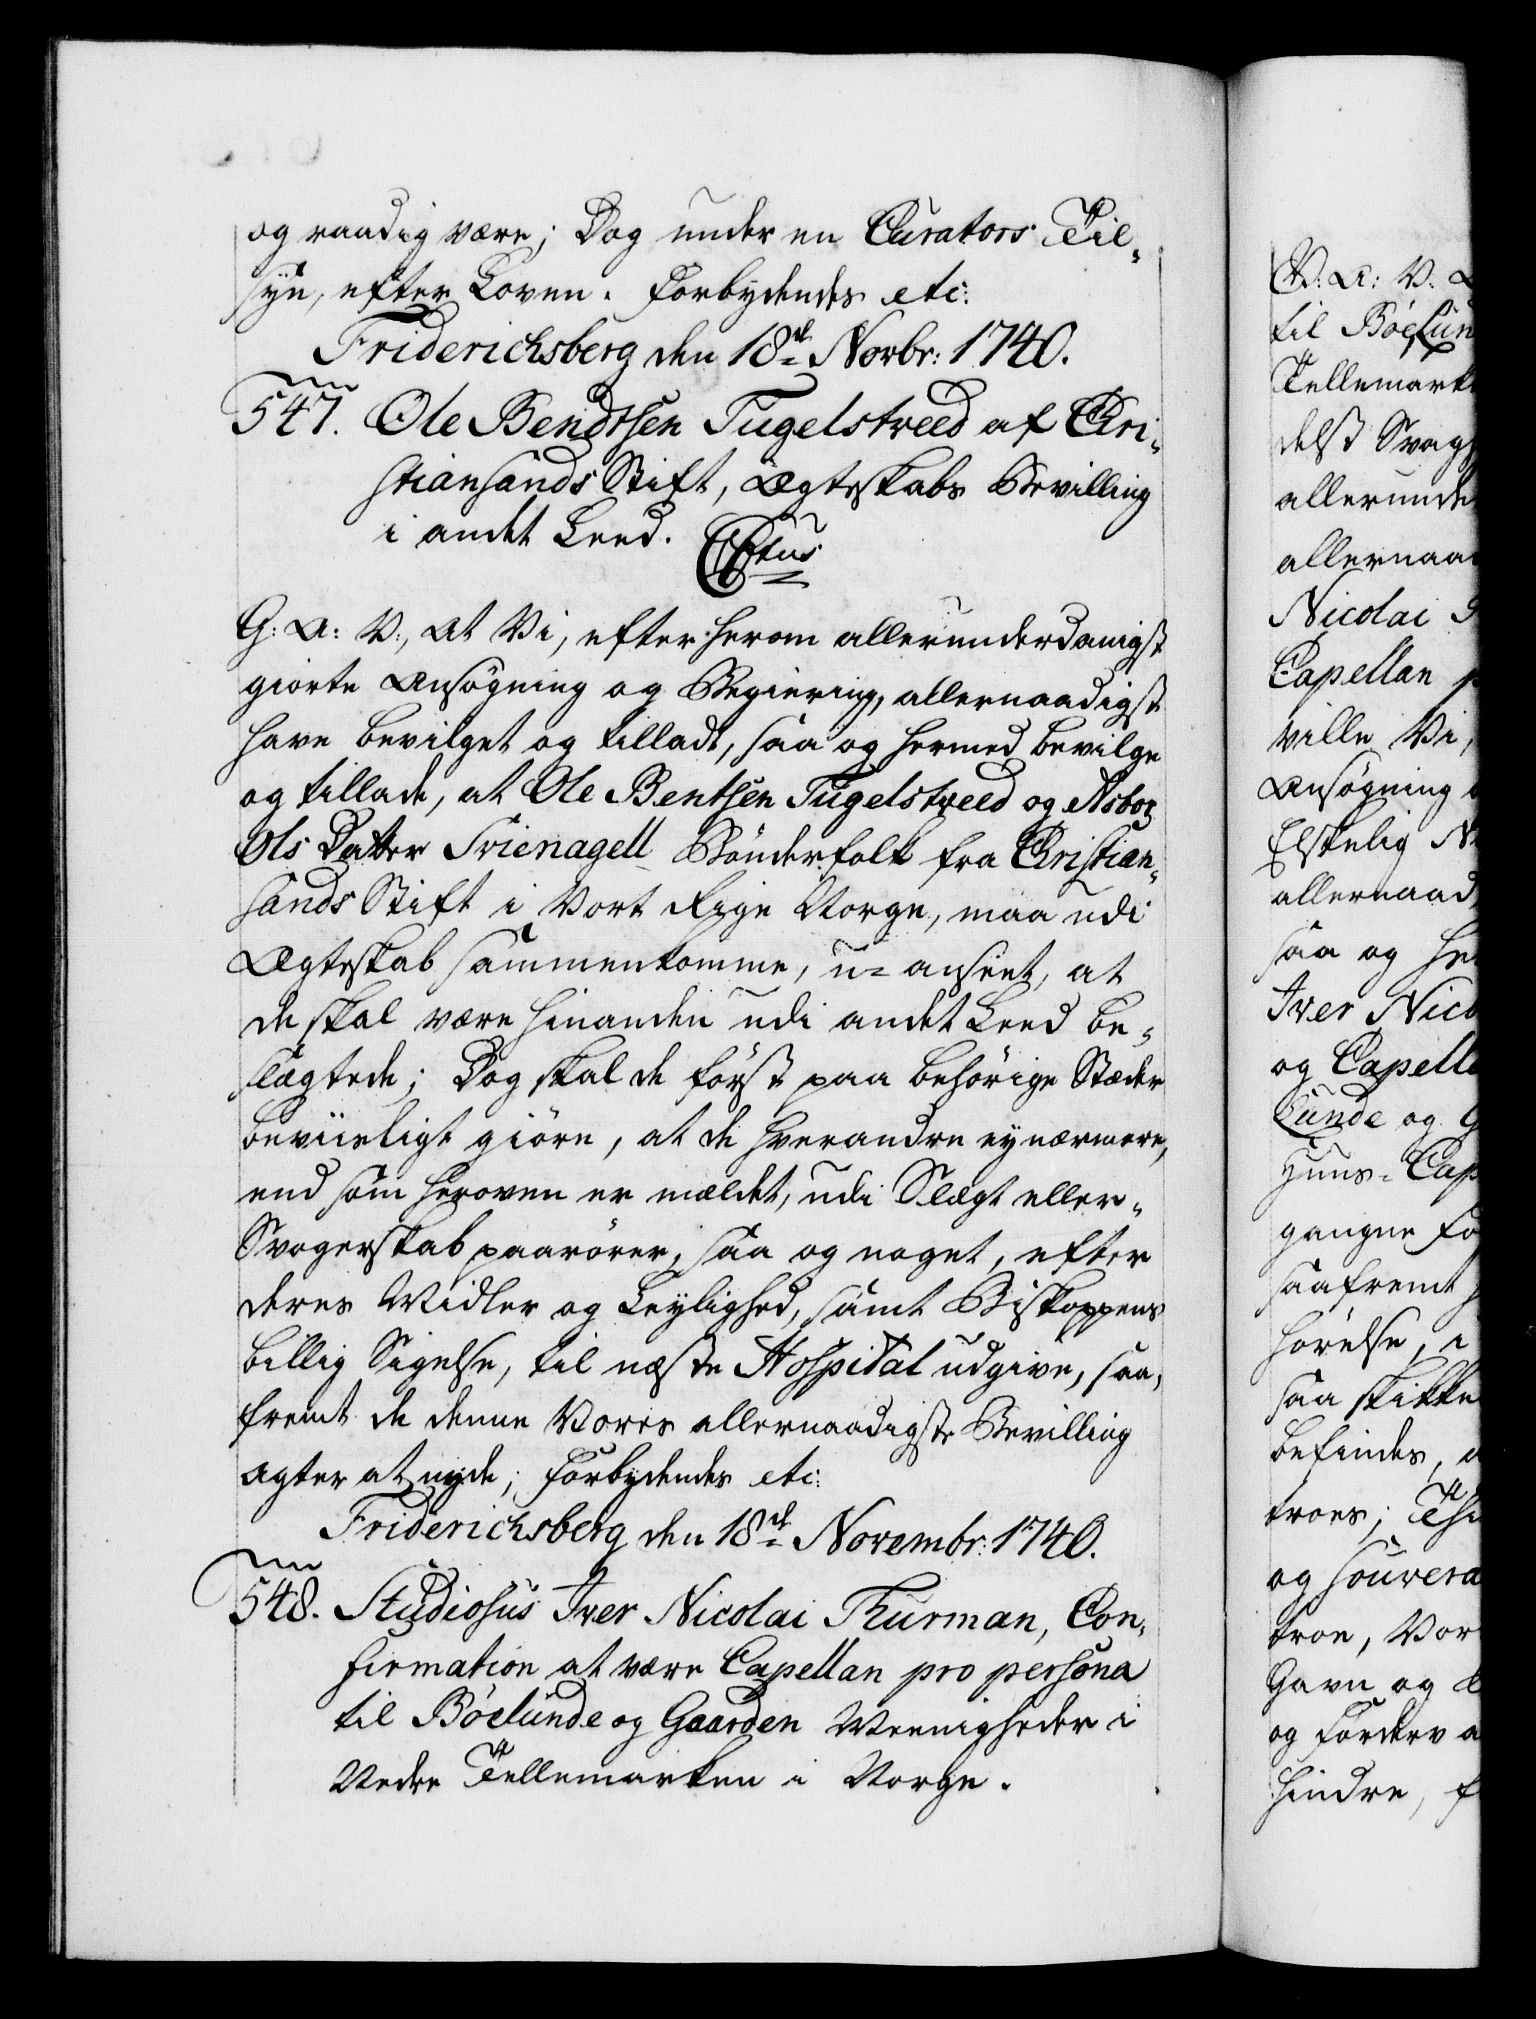 og raadig være; Dog under en Curators Til-
syn, efter Loven. Forbydendes etc:
Friderichsberg den 18de Novbr: 1740.
547. Ole Bendtsen Tugelstveed af Chri-
stiansands Stift, Ægteskabs Bevilling
i andet Leed.
G: A: V:, At Vi, efter herom allerunderdanigst
giorte Ansøgning og Begiering, allernaadigst
have bevilget og tilladt, saa og hermed bevilge
og tillade, at Ole Bentsen Tugelstveed og Asbor
Ols Datter Svienagell Bønderfolk fra Christian-
sands Stift i Vort Rige Norge, maa udi
Ægteskab sammenkomme, u-anseet, at
de skal være hinanden udi andet Leed be-
slægtede; Dog skal de først paa behørige Stæder
beviisligt giøre, at de hverandre ey nærmere,
end som heroven er meldet, udi Slægt eller
Svogerskab paarører, saa og noget, efter
deres Midler og Leylighed, samt Biskoppens
billig Sigelse, til næste Hospital udgive, saa-
fremt de denne Vores allernaadigste Bevilling
agter at nyde; Forbydendes etc:
Friderichsberg den 18de Novembr: 1740.
548. Studiosus Iver Nicolai Thurman, Con-
firmation at være Capellan pro persona
til Böelunde og Gaarden Meenigheder i
Nedre Tellemarken i Norge.
V: A: V.
til Böelun
Tellemark
delst Svag
allerunde
allernaa
Nicolai
Capellan
ville Vi,
Ansøgning
Elskelig
allernaad
saa og he
Iver Nico
og Capell
lunde og G
Huus-Cap
gangne Fo
saafremt
hørelse, i
saa skikke
befindes,
troes; Thi
og souvera
troe, Vor
Gavn og
og Forderv a
hindre, f